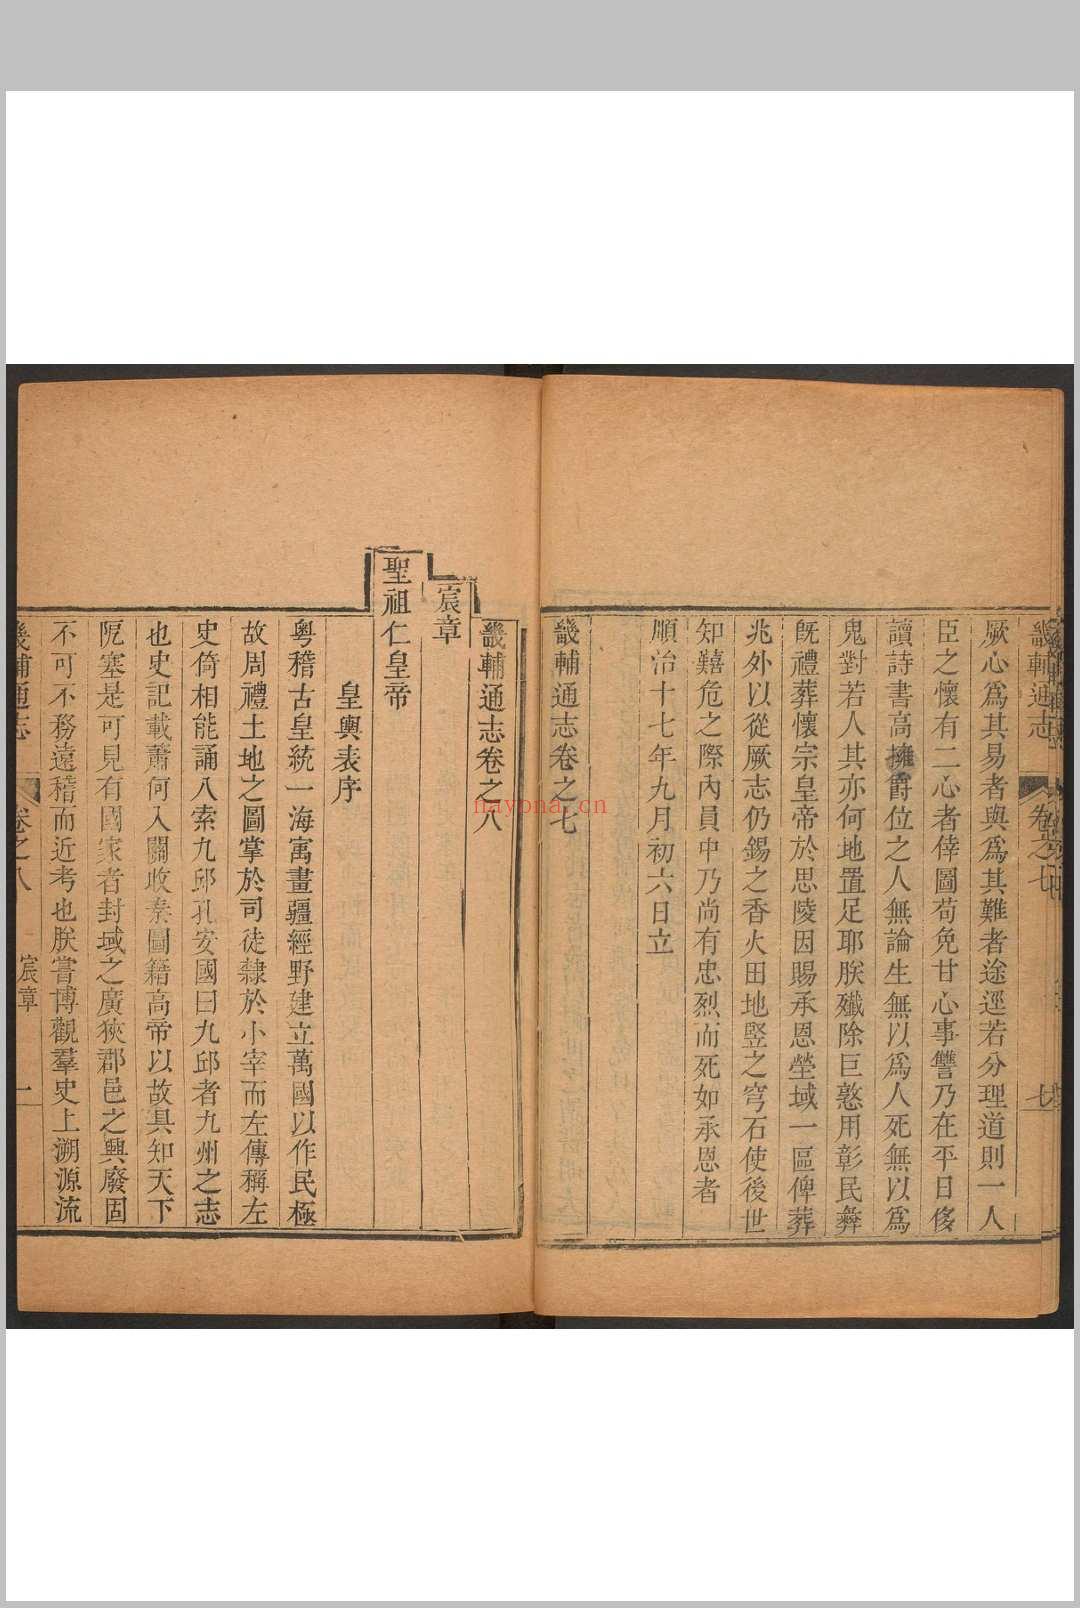 畿輔通志 卷之七 七
厥心爲其易者與爲其難者途逕若分理道則一人
臣之懷有二心者倖圖苟免甘心事讐乃在平日侈
讀詩書高擁爵位之人無論生無以爲人死無以爲
鬼對若人其亦何地置足耶朕殲除巨憝用彰民彝
旣禮葬懷宗皇帝於思陵因賜承恩塋域一區俾葬
兆外以從厥志仍錫之香火田地竪之穹石使後世
知囏危之際內員中乃尚有忠烈而死如承恩者
順治十七年九月初六日立
畿輔通志卷之七
畿輔通志卷之八
宸章
聖祖仁皇帝
皇輿表序
粵稽古皇統一海寓畫疆經野建立萬國以作民極
故周禮土地之圖掌於司徒隸於小宰而左傳稱左
史倚相能誦八索九邱孔安國曰九邱者九州之志
也史記載蕭何入關收秦圖籍高帝以故具知天下
阨塞是可見有國家者封域之廣狹郡邑之興廢固
不可不務遠稽而近考也朕嘗博觀羣史上溯源流
畿輔通志 卷之八 宸章 一
nayona.cn